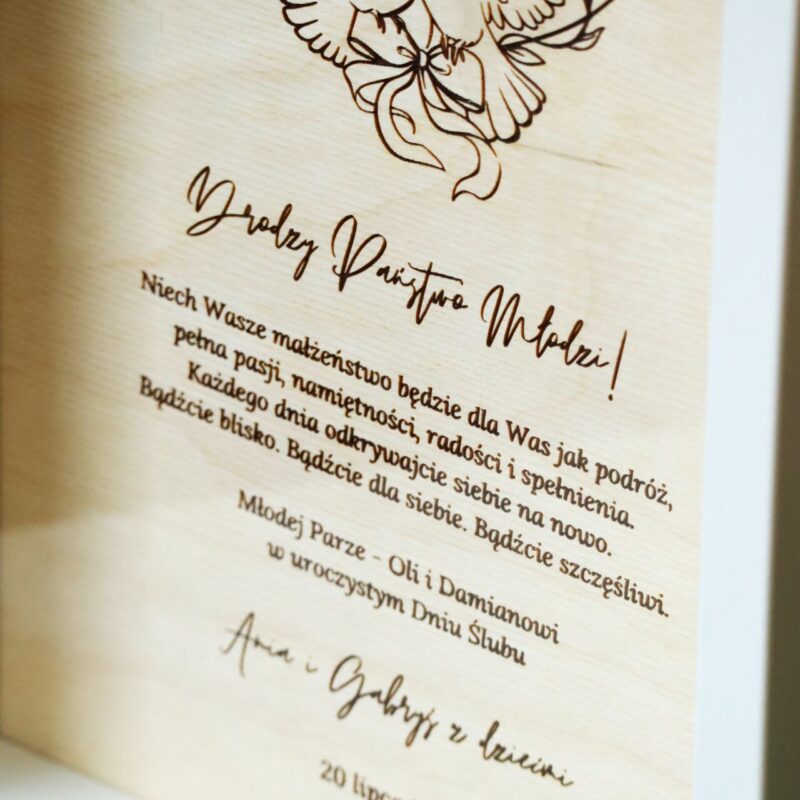 Drodzy Państwo Młodzi!
Niech Wasze małżeństwo będzie dla Was jak podróż,
pełna pasji, namiętności, radości i spełnienia.
Każdego dnia odkrywajcie siebie na nowo.
Bądźcie blisko. Bądźcie dla siebie. Bądźcie szczęśliwi.
Młodej Parze - Oli i Damianowi
w uroczystym Dniu Ślubu
Ania i Gabryś z dziećmi
20